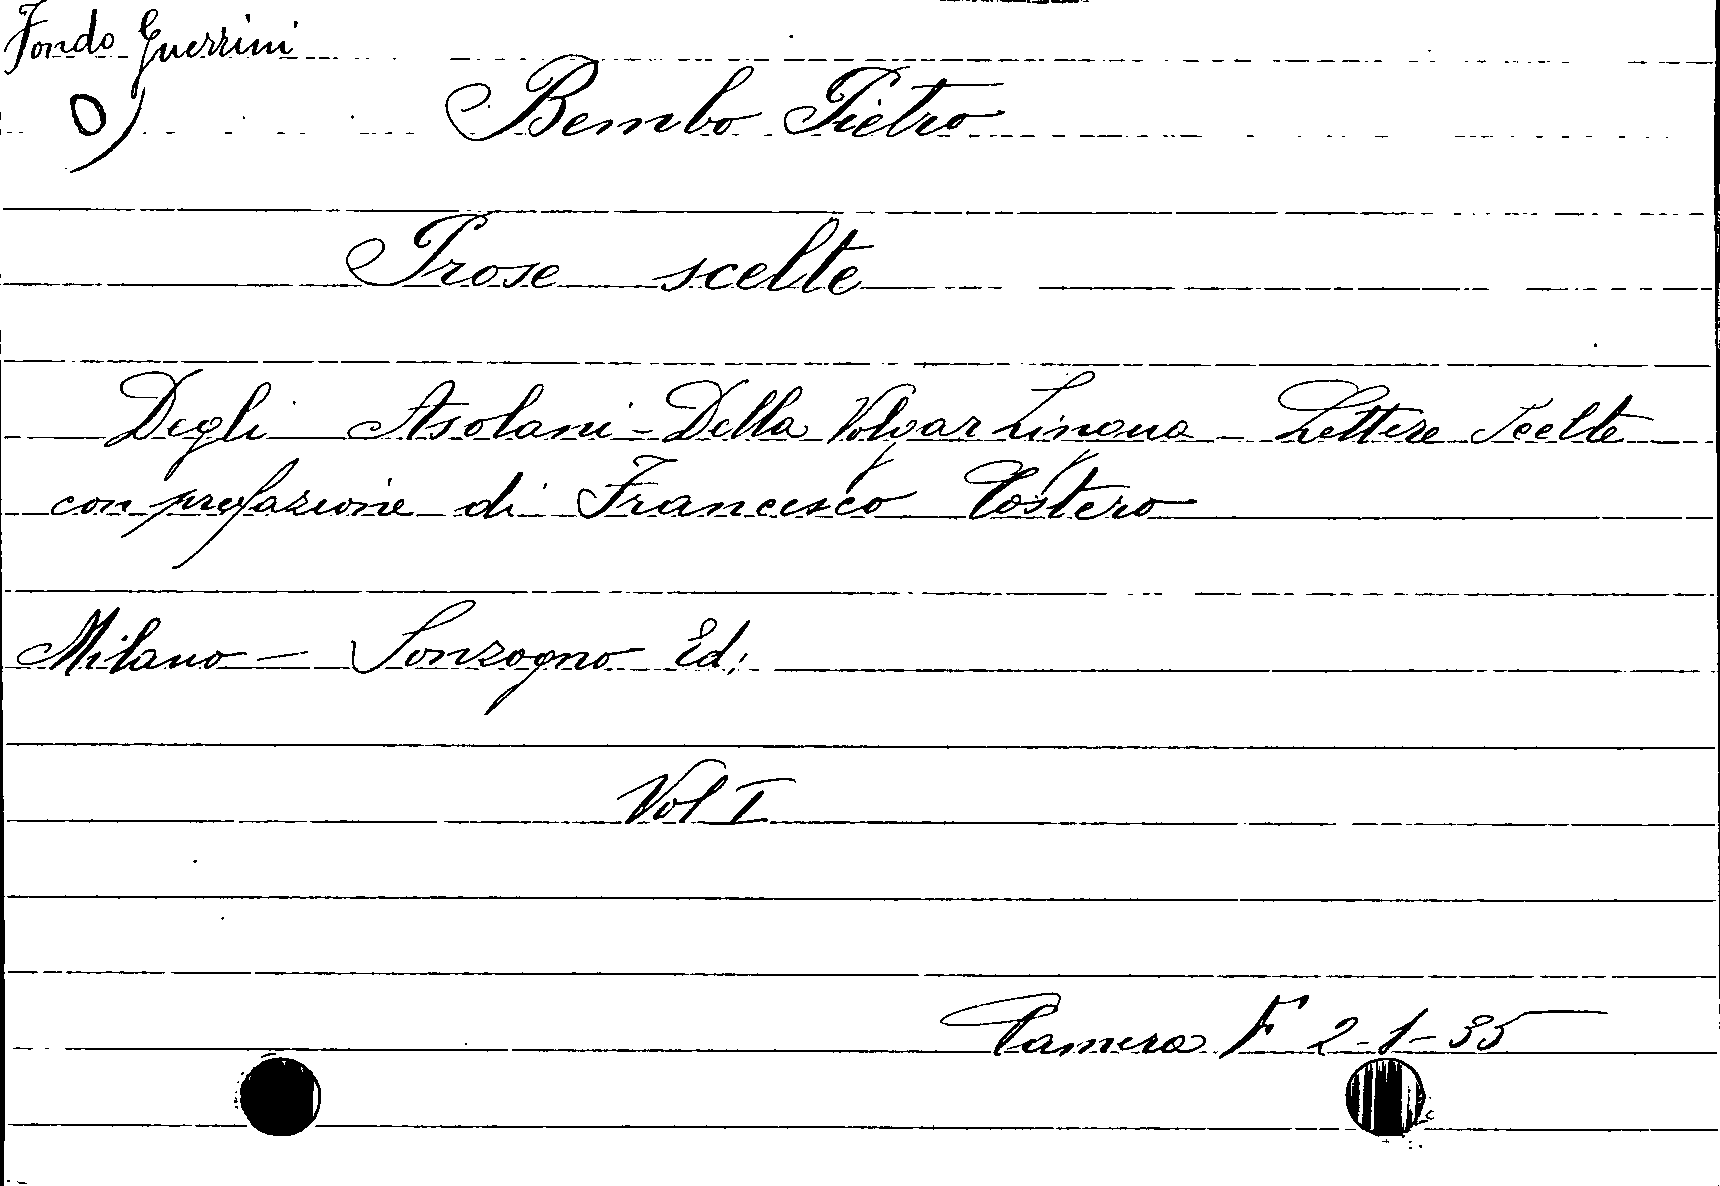 Fondo Guerrini
O)
Bembo Pietro
Prose scelte
Degli Asolani - Della Volgar Lingua - Lettere Scelte
con prefazione di Francesco Costero
Milano - Sonzogno Ed.
Vol I
Camera F 2-1-35